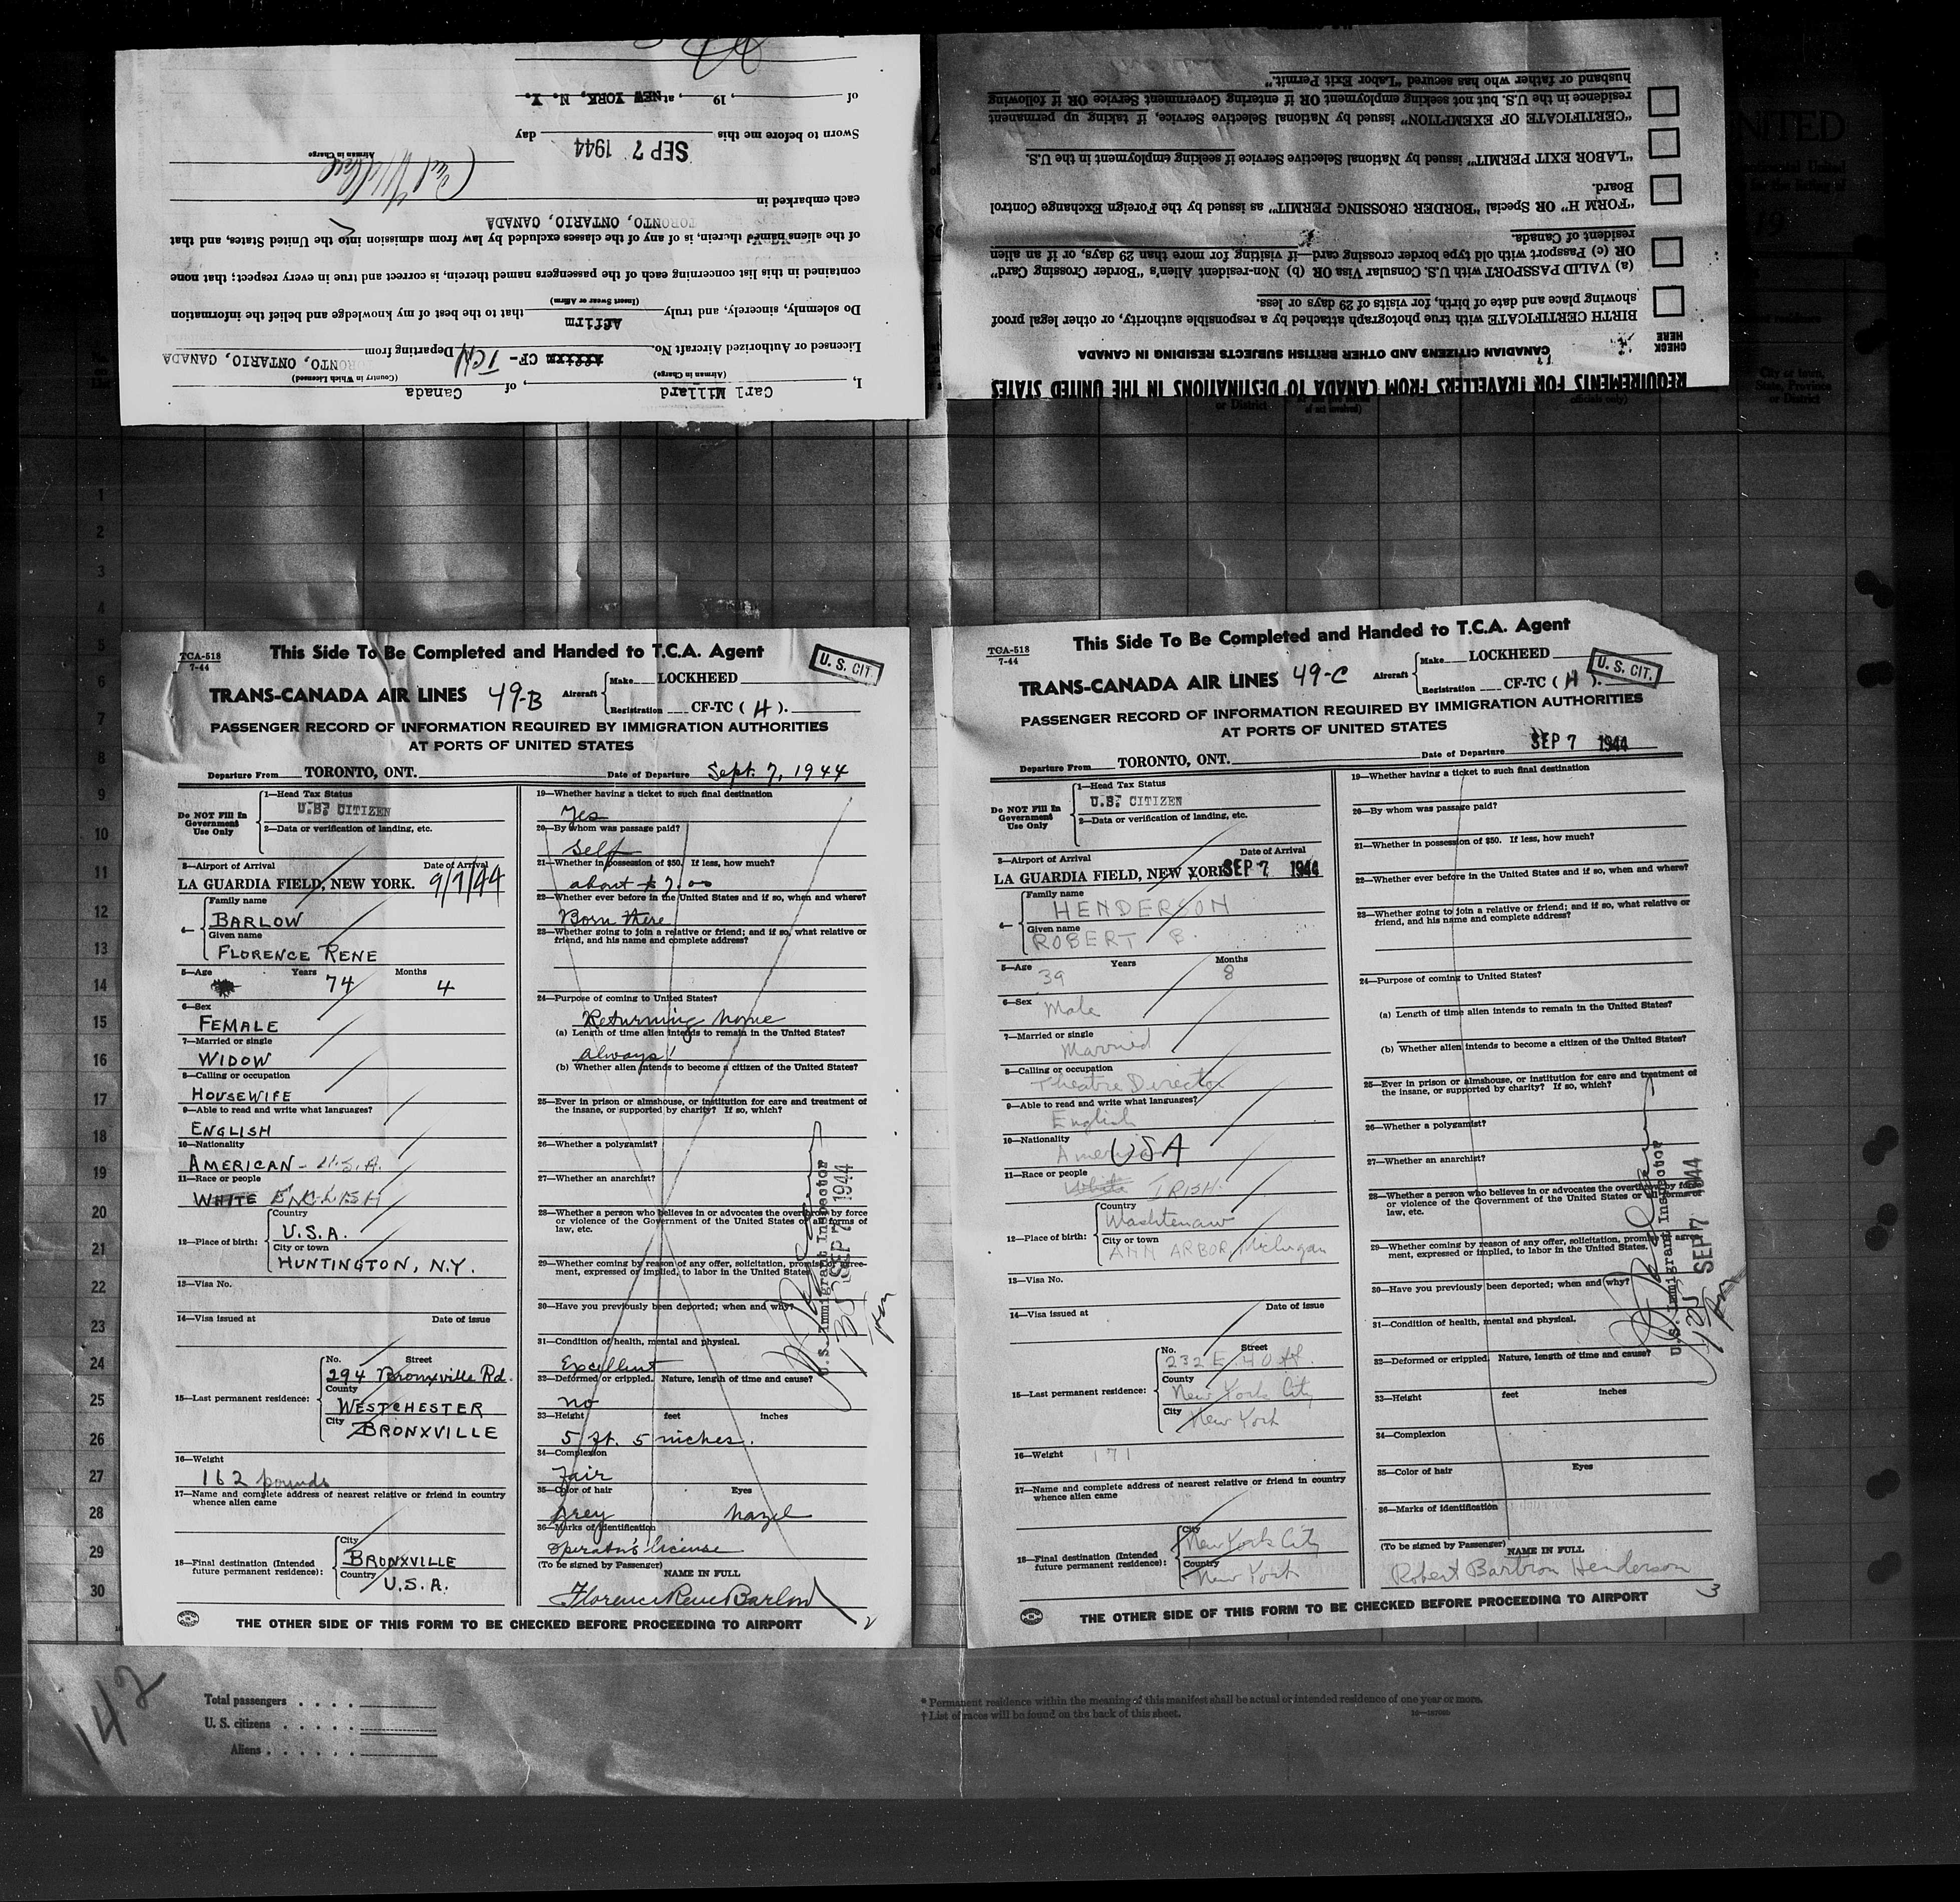 I, Carl Millard, of Canada
(Airman in Charge) (Country in Which Licensed)
Licensed or Authorized Aircraft No. CF- TCH Departing from TORONTO, ONTARIO, CANADA
Do solemnly, sincerely, and truly Affirm that to the best of my knowledge and belief the information
(Insert Swear or Affirm)
contained in this list concerning each of the passengers named therein, is correct and true in every respect; that none
of the aliens named therein, is of any of the classes excluded by law from admission into the United States, and that
TORONTO, ONTARIO, CANADA
each embarked in
Airman in Charge
Sworn to before me this SEP 7 1944 day
of , 19 , at NEW YORK, N. Y.
REQUIREMENTS FOR TRAVELLERS FROM CANADA TO DESTINATIONS IN THE UNITED STATES
CANADIAN CITIZENS AND OTHER BRITISH SUBJECTS RESIDING IN CANADA
CHECK
HERE
BIRTH CERTIFICATE with true photograph attached by a responsible authority, or other legal proof
showing place and date of birth, for visits of 29 days or less.
(a) VALID PASSPORT with U.S. Consular Visa OR (b) Non-resident Alien's "Border Crossing Card"
OR (c) Passport with old type border crossing card—if visiting for more than 29 days, or if an alien
resident of Canada.
"FORM H" OR Special "BORDER CROSSING PERMIT" as issued by the Foreign Exchange Control
Board.
"LABOR EXIT PERMIT" issued by National Selective Service if seeking employment in the U.S.
"CERTIFICATE OF EXEMPTION" issued by National Selective Service, if taking up permanent
residence in the U.S. but not seeking employment OR if entering Government Service OR if following
husband or father who has secured "Labor Exit Permit."
NITED
City of town,
State, Province
or District
1
2
3
4
5
6
7
8
9
10
11
12
13
14
15
16
17
18
19
20
21
22
23
24
25
26
27
28
29
30
TCA-518
7-44
This Side To Be Completed and Handed to T.C.A. Agent
U. S. CIT.
TRANS-CANADA AIR LINES 49-B Aircraft Make LOCKHEED
Registration CF-TC ( H ).
PASSENGER RECORD OF INFORMATION REQUIRED BY IMMIGRATION AUTHORITIES
AT PORTS OF UNITED STATES
Departure From TORONTO, ONT. Date of Departure Sept. 7, 1944
Do NOT Fill In
Government
Use Only
1—Head Tax Status
U.S. CITIZEN
2—Data or verification of landing, etc.
3—Airport of Arrival Date of Arrival
LA GUARDIA FIELD, NEW YORK. 9/7/44
4— Family name
BARLOW
Given name
FLORENCE RENE
5—Age Years Months
74 4
6—Sex
FEMALE
7—Married or single
WIDOW
8—Calling or occupation
HOUSEWIFE
9—Able to read and write what languages?
ENGLISH
10—Nationality
AMERICAN - U.S.A.
11—Race or people
WHITE ENGLISH
12—Place of birth: Country
U.S.A.
City or town
HUNTINGTON, N.Y.
13—Visa No.
14—Visa issued at Date of issue
15—Last permanent residence: No. Street
294 Bronxville Rd.
County
WESTCHESTER
City
BRONXVILLE
16—Weight
162 pounds
17—Name and complete address of nearest relative or friend in country
whence alien came
18—Final destination (Intended
future permanent residence):
City
BRONXVILLE
Country
U.S.A.
19—Whether having a ticket to such final destination
Yes
20—By whom was passage paid?
Self
21—Whether in possession of $50. If less, how much?
about $7.00
22—Whether ever before in the United States and if so, when and where?
Born there
23—Whether going to join a relative or friend; and if so, what relative or
friend, and his name and complete address?
24—Purpose of coming to United States?
Returning home
(a) Length of time alien intends to remain in the United States?
always!
(b) Whether alien intends to become a citizen of the United States?
25—Ever in prison or almshouse, or institution for care and treatment of
the insane, or supported by charity? If so, which?
26—Whether a polygamist?
27—Whether an anarchist?
28—Whether a person who believes in or advocates the overthrow by force
or violence of the Government of the United States or all forms of
law, etc.
29—Whether coming by reason of any offer, solicitation, promise or agree-
ment, expressed or implied, to labor in the United States.
30—Have you previously been deported; when and why?
31—Condition of health, mental and physical.
Excellent
32—Deformed or crippled. Nature, length of time and cause?
no
33—Height feet inches
5 ft. 5 inches.
34—Complexion
Fair
35—Color of hair Eyes
grey hazel
36—Marks of identification
operator's license
(To be signed by Passenger) NAME IN FULL
Florence Rene Barlow
U.S. Immigrant Inspector
SEP 7 1944
THE OTHER SIDE OF THIS FORM TO BE CHECKED BEFORE PROCEEDING TO AIRPORT
2
TCA-518
7-44
This Side To Be Completed and Handed to T.C.A. Agent
U. S. CIT.
TRANS-CANADA AIR LINES 49-C Aircraft Make LOCKHEED
Registration CF-TC ( H ).
PASSENGER RECORD OF INFORMATION REQUIRED BY IMMIGRATION AUTHORITIES
AT PORTS OF UNITED STATES
Departure From TORONTO, ONT. Date of Departure SEP 7 1944
Do NOT Fill In
Government
Use Only
1—Head Tax Status
U.S. CITIZEN
2—Data or verification of landing, etc.
3—Airport of Arrival Date of Arrival
LA GUARDIA FIELD, NEW YORK. SEP 7 1944
4— Family name
HENDERSON
Given name
ROBERT B.
5—Age Years Months
39 8
6—Sex
Male
7—Married or single
Married
8—Calling or occupation
Theatre Director
9—Able to read and write what languages?
English
10—Nationality
American USA
11—Race or people
White IRISH.
12—Place of birth: Country
Washtenaw
City or town
ANN ARBOR, Michigan
13—Visa No.
14—Visa issued at Date of issue
15—Last permanent residence: No. Street
232 E. 40 St.
County
New York City
City
New York
16—Weight
171
17—Name and complete address of nearest relative or friend in country
whence alien came
18—Final destination (Intended
future permanent residence):
City
New York City
Country
New York
19—Whether having a ticket to such final destination
20—By whom was passage paid?
21—Whether in possession of $50. If less, how much?
22—Whether ever before in the United States and if so, when and where?
23—Whether going to join a relative or friend; and if so, what relative or
friend, and his name and complete address?
24—Purpose of coming to United States?
(a) Length of time alien intends to remain in the United States?
(b) Whether alien intends to become a citizen of the United States?
25—Ever in prison or almshouse, or institution for care and treatment of
the insane, or supported by charity? If so, which?
26—Whether a polygamist?
27—Whether an anarchist?
28—Whether a person who believes in or advocates the overthrow by force
or violence of the Government of the United States or all forms of
law, etc.
29—Whether coming by reason of any offer, solicitation, promise or agree-
ment, expressed or implied, to labor in the United States.
30—Have you previously been deported; when and why?
31—Condition of health, mental and physical.
32—Deformed or crippled. Nature, length of time and cause?
33—Height feet inches
34—Complexion
35—Color of hair Eyes
36—Marks of identification
(To be signed by Passenger) NAME IN FULL
Robert Bartron Henderson
U.S. Immigrant Inspector
SEP 7 1944
THE OTHER SIDE OF THIS FORM TO BE CHECKED BEFORE PROCEEDING TO AIRPORT
3
142
Total passengers
U. S. citizens
Aliens
* Permanent residence within the meaning of this manifest shall be actual or intended residence of one year or more.
† List of races will be found on the back of this sheet.